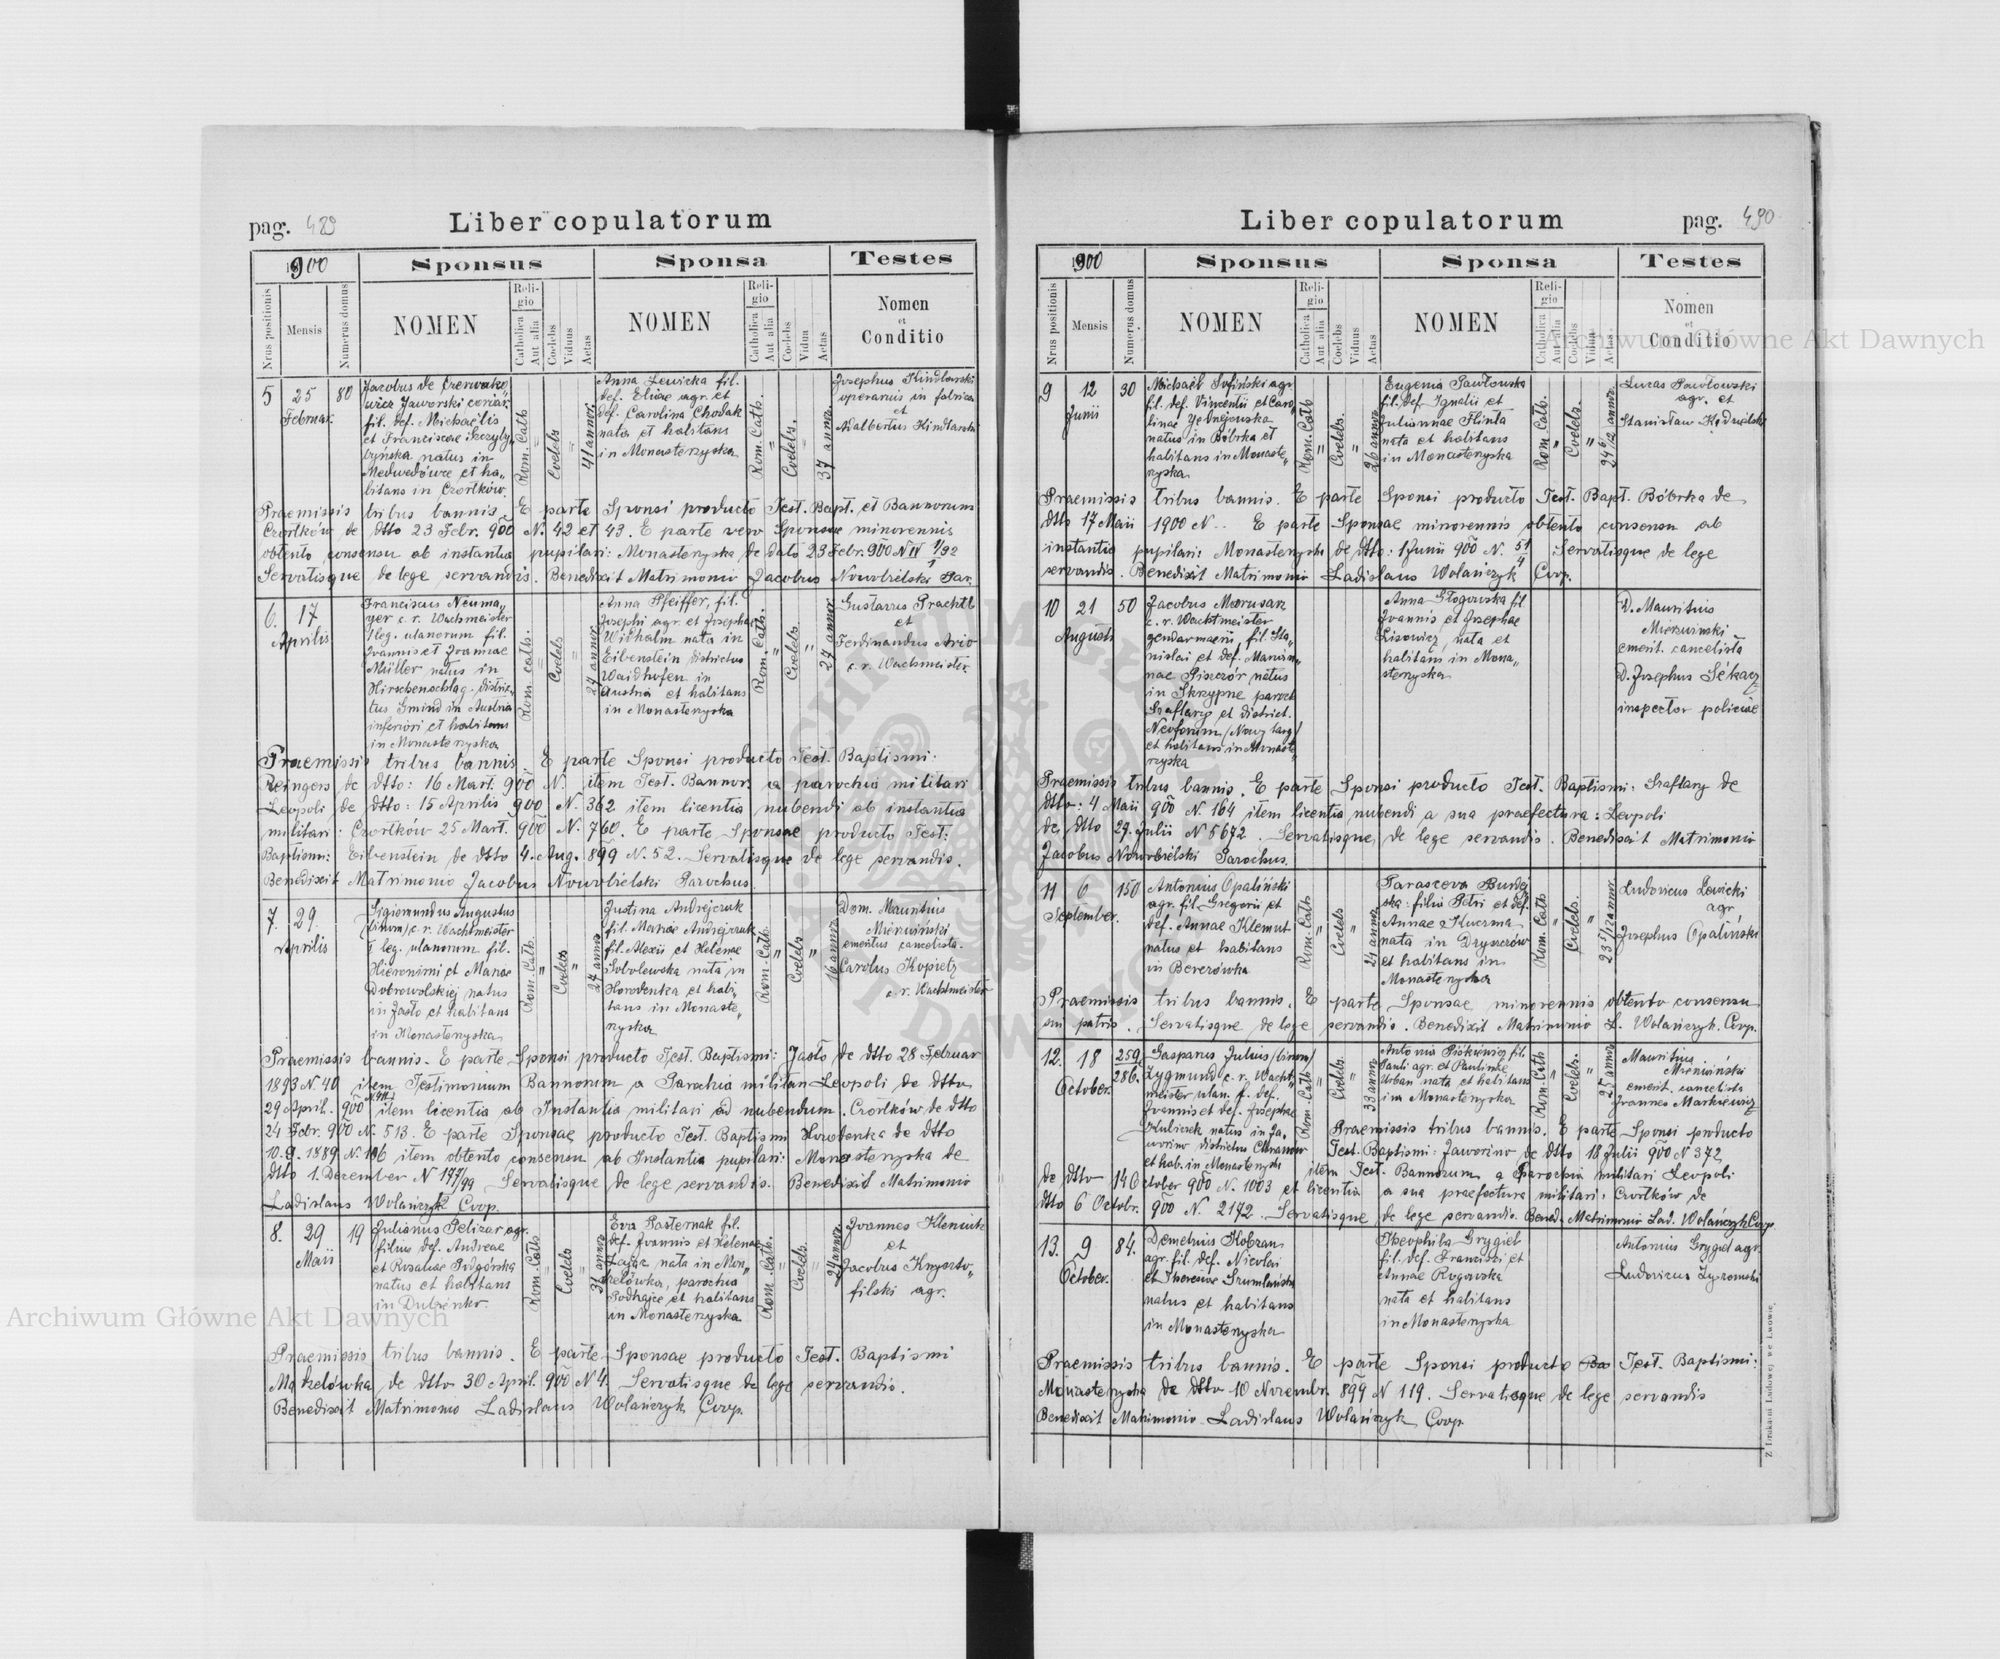 pag. 489
Liber copulatorum
900
Sponsus
Sponsa
Testes
Nrus positionis
Mensis
Numerus domus
NOMEN
Religio
Catholica
Aut alia
Coelebs
Viduus
Aetas
NOMEN
Religio
Catholica
Aut alia
Coelebs
Vidua
Aetas
Nomen
et
Conditio
5
25
Februar.
80
Jacobus de
Jaworski
fil. def. Michaëlis
et Franciscae
natus in
Medwedówce et ha„
bitans in Czortków.
Rom. Cath.
Coelebs
41 annor.
Anna Lewicka fil.
def. Eliae agr. et
def. Carolina Chodak
nata et habitans
in Monasterzyska
Rom. Cath.
Coelebs.
37 annor.
Josephus Kindlarski
operarius in fabrica
et
Adalbertus Kindlarski
Praemissis tribus bannis. E parte Sponsi producto Test. Bapt. et Bannorum
Czortków de dtto 23 Febr. 900 N. 42 et 43. E parte vero Sponsae minorennis
obtento consensu ab instantia pupilari: Monasterzyska de dato 23 Febr. 900 N IV 1/92
Servatisque de lege servandis. Benedixit Matrimonio Jacobus Nowobielski Par.
6.
17
Aprilis
Franciscus Neuma„
yer c. r. Wachmeister
leg. ulanorum fil.
Joannis et Joannae
Müller natus in
Hirschenschlag. distric„
tus Gmünd in Austria
inferiori et habitans
in Monasterzyska
Rom. cath.
Coelebs
27 annor.
Anna Pfeiffer, fil.
Josephi agr. et Josephae
Withalm nata in
Eibenstein districtus
Waidhofen in
Austria et habitans
in Monasterzyska
Rom. Cath.
Coelebs.
27 annor.
Gustavus Prachtl
et
Ferdinandus Ario
c. r. Wachmeister
Praemissis tribus bannis. E parte Sponsi producto Test. Baptismi:
Reingers de dtto: 16 Mart. 900 N. item Test. Bannor. a parochia militari
Leopoli de dtto: 15 Aprilis 900 N. 362 item licentia nubendi ab instantia
militari: Czortków 25 Mart. 900 N. 760. E parte Sponsae producto Test:
Baptism: Eibenstein de dtto 4. Aug. 899 N. 52. Servatisque de lege servandis.
Benedixit Matrimonio Jacobus Nowobielski Parochus.
7.
29.
Aprilis
Sigismundus Augustus
c. r. Wachtmeister
leg. ulanorum fil.
Hieronimi et Mariae
Dobrowolskiej natus
in Jasło et habitans
in Monasterzyska
Rom. Cath.
Coelebs
27 annor
Justina Andrejczuk
fil. Mariae Andrejczuk
fil. Alexii et Helenae
Sobolewska nata in
Horodenka et habi„
tans in Monaste„
rzyska
Rom. Cath.
Coelebs
16 annor
Dom. Mauritius
Mierwiński
emeritus cancelista.
Carolus Kopietz
c. r. Wachtmeister
Praemissis bannis. E parte Sponsi producto Test. Baptismi: Jasło de dtto 28 Februar
1893 N. 40 item Testimonium Bannorum a Parochia militari Leopoli de dtto
29 April. 900 item licentia ab Instantia militari ad nubendum. Czortków de dtto
24 Febr. 900 N. 513. E parte Sponsae producto Test. Baptismi Horodenka de dtto
10. 9. 1889 N. 106 item obtento consensu ab Instantia pupilari: Monasterzyska de
dtto 1. December N 177/99 Servatisque de lege servandis. Benedixit Matrimonio
Ladislaus Wolańczyk Coop.
8.
29
Maii
19
Julianus Pelizar agr.
filius def. Andreae
et Rosaliae Podgórska
natus et habitans
in
Rom. Cath.
Coelebs
31 annor
Eva Pasternak fil.
def. Joannis et Helenae
Zając nata in Mon„
parochia
Podhajce et habitans
in Monasterzyska
Rom. Cath.
Coelebs.
24 annor
Joannes Kleniuk
et
Jacobus Krzyszto„
filski agr.
Praemissis tribus bannis. E parte Sponsae producto Test. Baptismi
de dtto 30 April. 900 N 4. Servatisque de lege servandis.
Benedixit Matrimonio Ladislaus Wolańczyk Coop.
Liber copulatorum
pag. 490
900
Sponsus
Sponsa
Testes
Nrus positionis
Mensis
Numerus domus
NOMEN
Religio
Catholica
Aut alia
Coelebs
Viduus
Aetas
NOMEN
Religio
Catholica
Aut alia
Coelebs
Vidua
Aetas
Nomen
et
Conditio
9
12
Junii
30
Michaël Sofiński agr.
fil. def. Vincentii et Caro„
linae
natus in Bóbrka et
habitans in Monaste„
rzyska
Rom. Cath
Coelebs.
26 annor
Eugenia Pawłowska
fil. def. Ignatii et
Juliannae Flinta
nata et habitans
in Monasterzyska
Rom. Cath.
Coelebs.
Lucas Pawłowski
agr. et
Stanisław
Praemissis tribus bannis. E parte Sponsi producto Test. Bapt. Bóbrka de
dtto 17 Maii 1900 N.. E parte Sponsae minorennis obtento consensu ab
instantia pupilari: Monasterzysk de dtto: 1 Junii 900 N. 51/4 Servatisque de lege
servandis. Benedixit Matrimonio Ladislaus Wolańczyk Coop.
10
21
Augusti
50
Jacobus Marusarz
c. r. Wachtmeister
gendarmerii, fil. Sta„
nislai et def. Marian„
nae natus
in Skrzypne paroch
Szaflary et district.
Neoforum /Nowy targ/
et habitans in Monaste„
rzyska
Anna Głogowska fil.
Joannis et Josephae
Lisowicz nata et
habitans in Mona„
sterzyska
D. Mauritius
Mierwinski
emerit. cancelista
D. Josephus Sékacz
inspector policiae
Praemissis tribus bannis. E parte Sponsi producto Test. Baptismi: Szaflary de
dtto: 4 Maii 900 N. 164 item licentia nubendi a sua praefectura: Leopoli
de dtto 27. Julii N 5672. Servatisque de lege servandis. Benedixit Matrimonio
Jacobus Nowobielski Parochus.
11
6
September.
150
Antonius Opaliński
agr. fil. Gregorii et
def. Annae Klemut
natus et habitans
in Berezówka
Rom. Cath
Coelebs
24 annor
Parasceva
ska: filia Petri et def.
Annae Kuczma
nata in Dryszczów
et habitans in
Monasterzyska
Rom. Cath
Coelebs.
23 5/12 annor
Ludovicus Lewicki
agr
Josephus Opaliński
Praemissis tribus bannis. E parte Sponsae minorennis obtento consensu
sui patris. Servatisque de lege servandis. Benedixit Matrimonio L. Wolańczyk. Coop.
12.
18
October.
259
286.
Gasparus Julius /binom/
Zygmund c. r. Wacht„
meister ulan. f. def.
Joannis et def. Josephae
Kuliczek natus in Ja„
worzno districtus Chrzanów
et hab. in Monasterzysk
Rom. Cath
Coelebs.
33 annor
Antonia fil.
Pauli agr. et Paulinae
Urban nata et habitans
in Monasterzyska
Rom. Cath
Coelebs.
25 annor
Mauritius
Mierwiński
emerit. cancelista
Joannes Markiewicz
Praemissis tribus bannis. E parte Sponsi producto
Test. Baptismi: Jaworzno de dtto 18 Julii 900 N 372
item Test. Bannorum a Parochia militari Leopoli
de dtto 14 October 900 N. 1003 et licentia a sua praefectura militari: Czortków de
dtto 6 Octobr. 900 N. 2192. Servatisque de lege servandis. Bened. Matrimonio Lad. Wolańczyk Coop.
13.
9
October.
84.
Demetrius Kobzan
agr. fil. def. Nicolai
et
natus et habitans
in Monasterzyska
Theophila Grygiel
fil. def. Francisci et
Annae Rogowska
nata et habitans
in Monasterzyska
Antonius Grygiel agr.
Ludovicus
Praemissis tribus bannis. E parte Sponsi producto Test. Baptismi:
Monasterzyska de dtto 10 Novembr. 899 N 119. Servatisque de lege servandis
Benedixit Matrimonio Ladislaus Wolańczyk Coop.
Z Drukarni Ludowej we Lwowie.
Archiwum Główne Akt Dawnych
Archiwum Główne Akt Dawnych